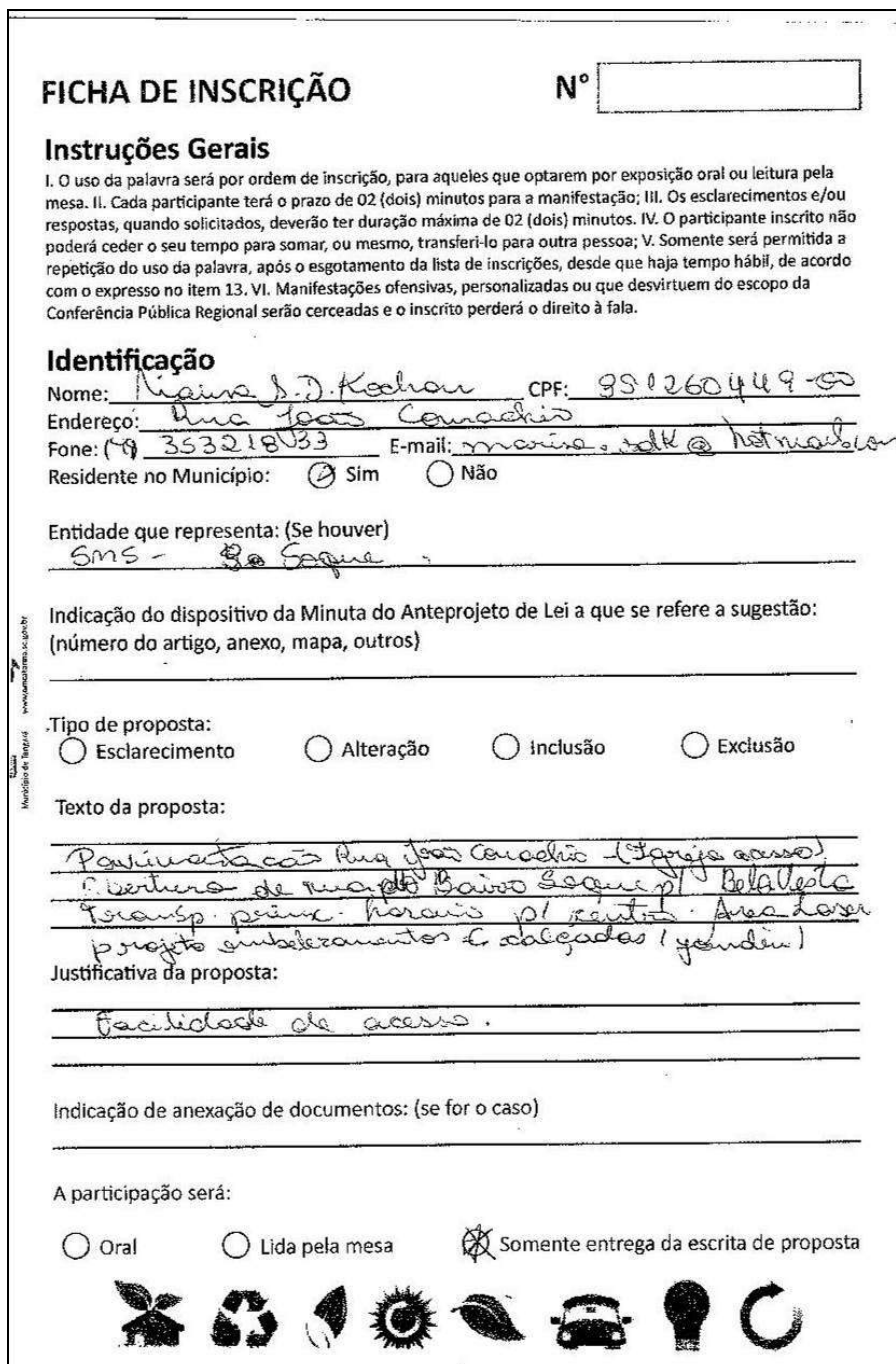 FICHA DE INSCRIÇÃO Nº
Instruções Gerais
I. O uso da palavra será por ordem de inscrição, para aqueles que optarem por exposição oral ou leitura pela
mesa. II. Cada participante terá o prazo de 02 (dois) minutos para a manifestação; III. Os esclarecimentos e/ou
respostas, quando solicitados, deverão ter duração máxima de 02 (dois) minutos. IV. O participante inscrito não
poderá ceder o seu tempo para somar, ou mesmo, transferi-lo para outra pessoa; V. Somente será permitida a
repetição do uso da palavra, após o esgotamento da lista de inscrições, desde que haja tempo hábil, de acordo
com o expresso no item 13. VI. Manifestações ofensivas, personalizadas ou que desvirtuem do escopo da
Conferência Pública Regional serão cerceadas e o inscrito perderá o direito à fala.
Identificação
Nome: S.D. Kochan CPF: 951260449-00
Endereço: Rua João
Fone: E-mail: marisa.sdk@hotmail.com
Residente no Município: Sim Não
Entidade que representa: (Se houver)
SMS -
Indicação do dispositivo da Minuta do Anteprojeto de Lei a que se refere a sugestão:
(número do artigo, anexo, mapa, outros)
Município de Tangará www.amcatarina.sc.gov.br
Tipo de proposta:
Esclarecimento Alteração Inclusão Exclusão
Texto da proposta:
Rua João (Igreja acesso)
Abertura de Bairro p/ Bela Vista
Transp. princ. horario p/ centro. Area Lazer
projeto embelezamentos calçadas (jardin)
Justificativa da proposta:
Facilidade de acesso.
Indicação de anexação de documentos: (se for o caso)
A participação será:
Oral Lida pela mesa Somente entrega da escrita de proposta